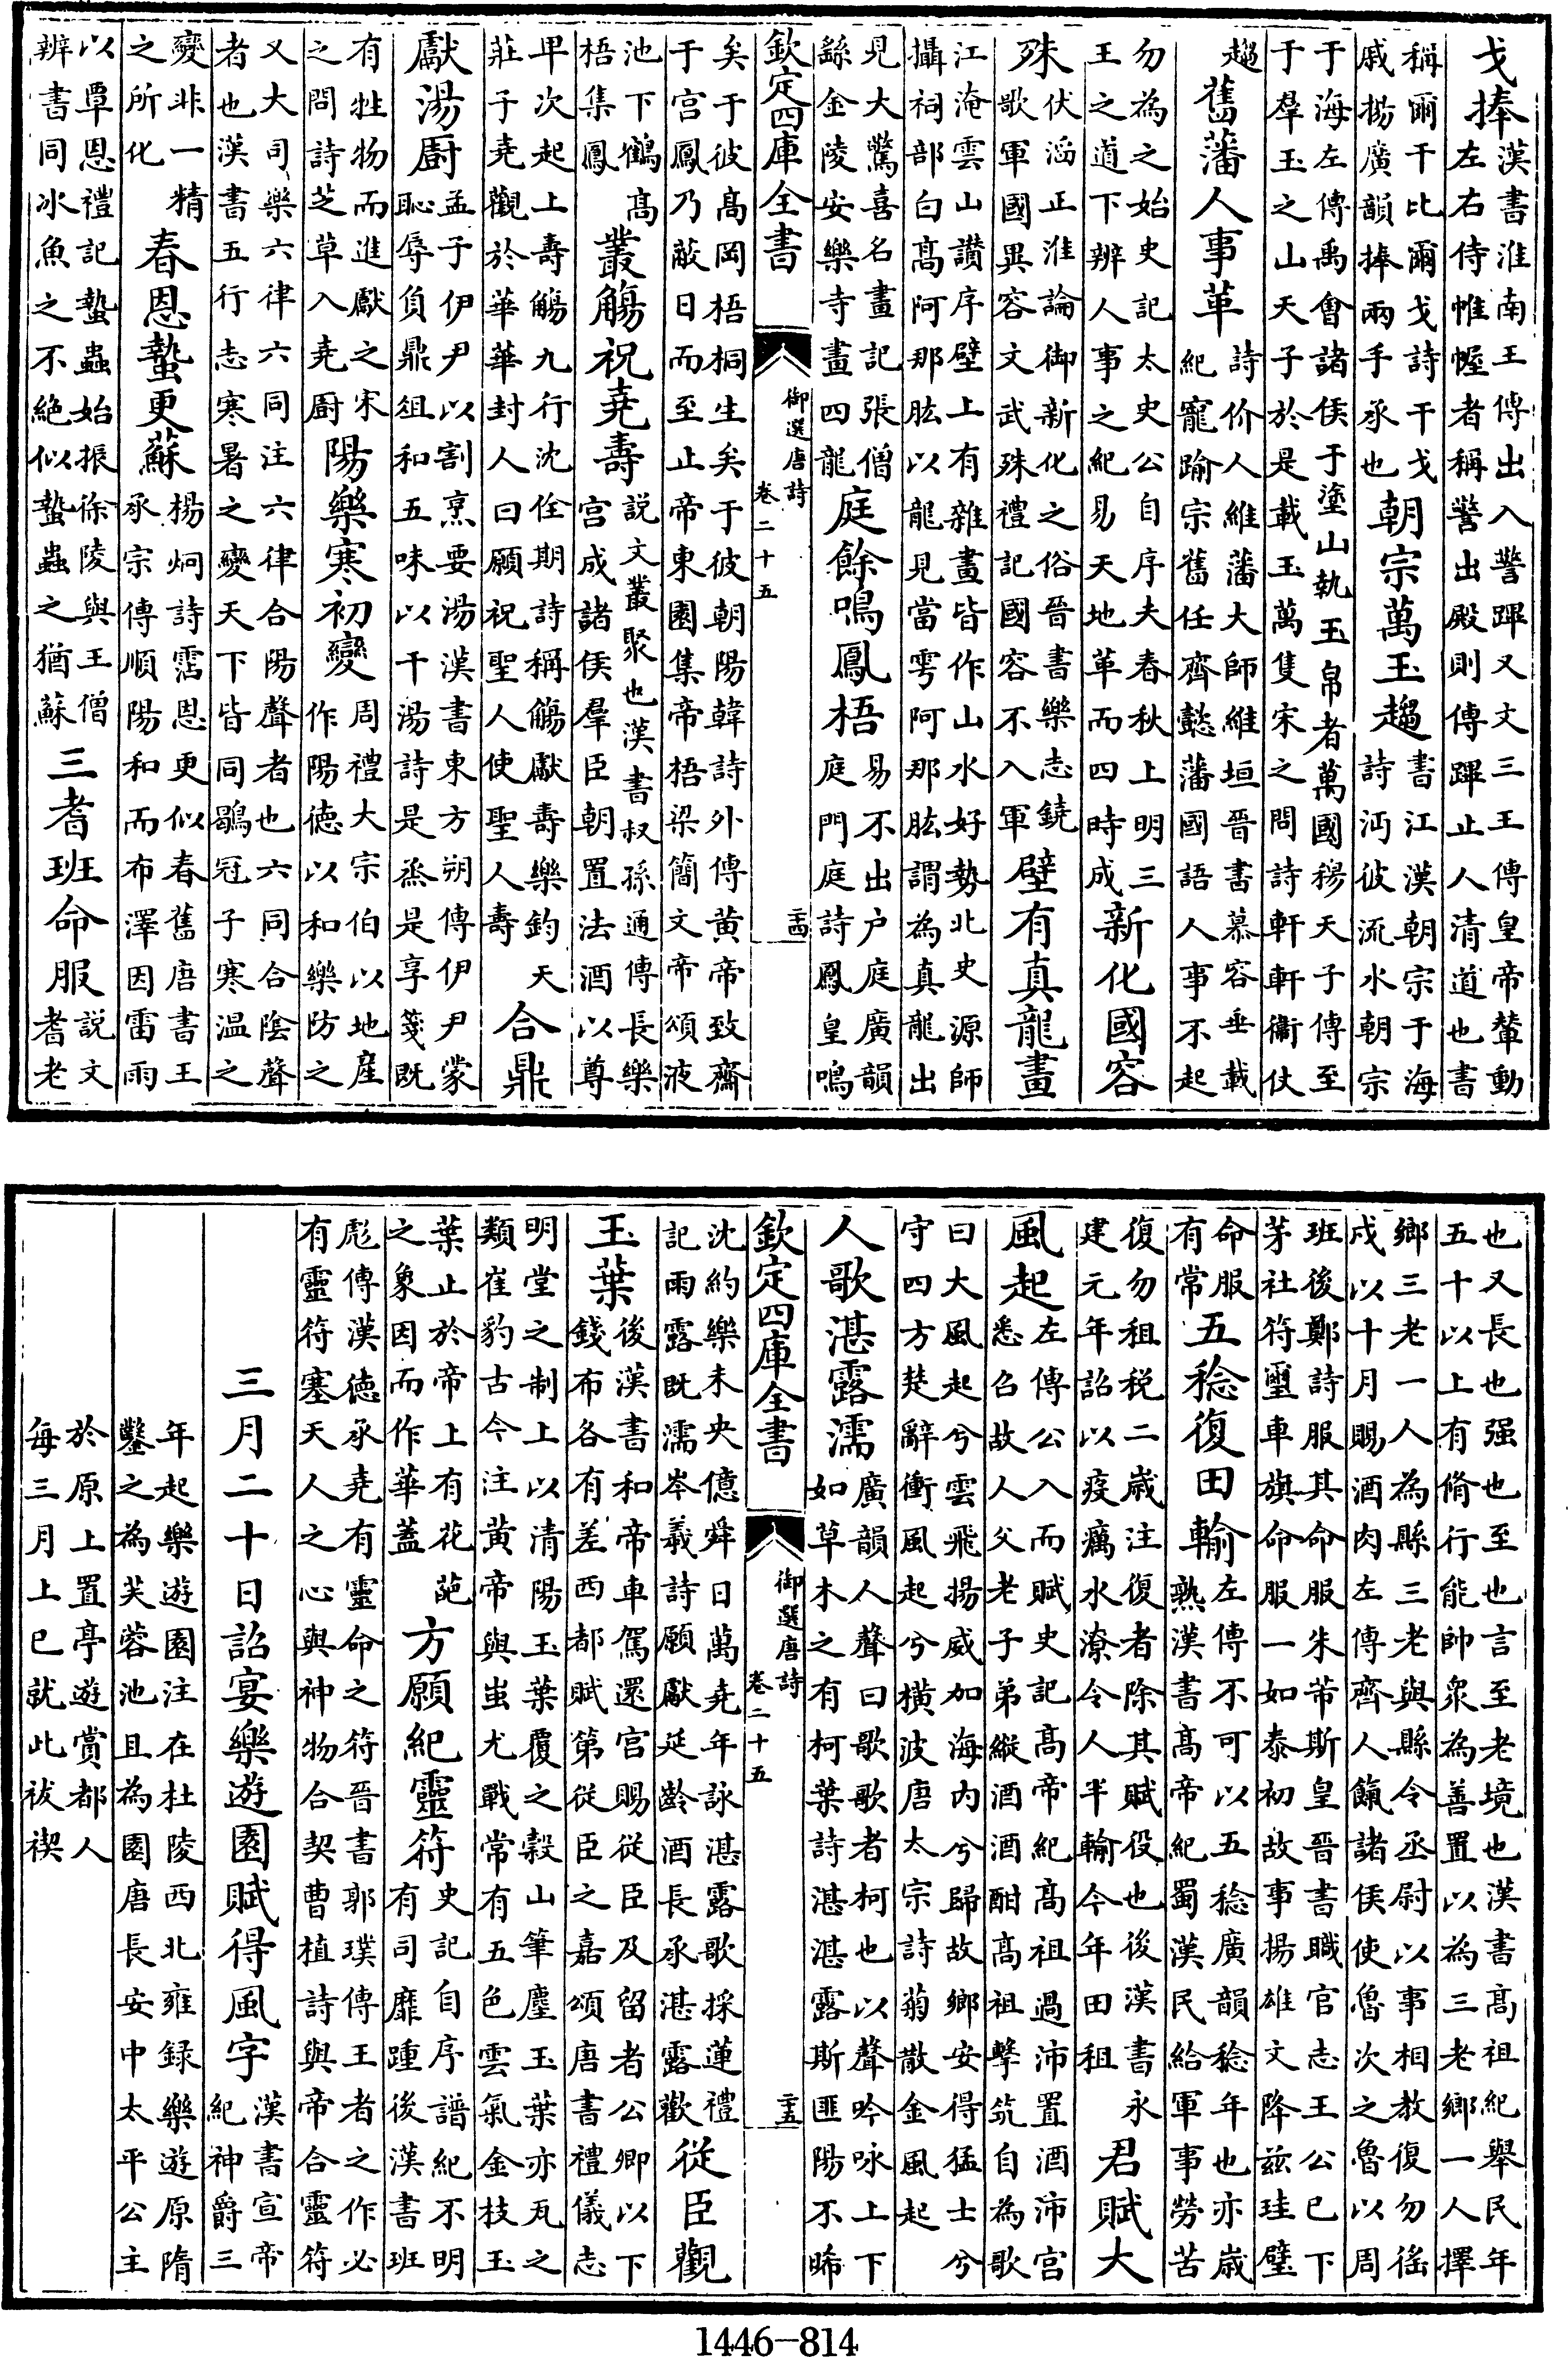 戈捧漢書淮南王傳出入警蹕又文三王傳皇帝輦動
左右侍帷幄者稱警出殿則傳蹕止人清道也書
稱爾干比爾戈詩干戈
戚揚廣韻捧兩手承也朝宗萬玉趨書江漢朝宗于海
詩沔彼流水朝宗
于海左傳禹會諸侯于塗山執玉帛者萬國穆天子傳至
于羣玉之山天子於是載玉萬隻宋之問詩軒軒衞仗
趨舊藩人事革詩价人維藩大師維垣晉書慕容垂載
紀寵踰宗舊任齊懿藩國語人事不起
勿為之始史記太史公自序夫春秋上明三
王之道下辨人事之紀易天地革而四時成新化國容
殊伏滔正淮論御新化之俗晉書樂志鐃
歌軍國異容文武殊禮記國容不入軍壁有真龍畫
江淹雲山讚序壁上有雜畫皆作山水好勢北史源師
攝祠部白髙阿那肱以龍見當雩阿那肱謂為真龍出
見大驚喜名畫記張僧
繇金陵安樂寺畫四龍庭餘鳴鳳梧易不出户庭廣韻
庭門庭詩鳳皇鳴
欽定四庫全書 御選唐詩 卷二十五 二十四
矣于彼髙岡梧桐生矣于彼朝陽韓詩外傳黄帝致齋
于宫鳳乃蔽日而至止帝東園集帝梧梁簡文帝頌液
池下鶴髙
梧集鳳叢觴祝堯壽説文叢聚也漢書叔孫通傳長樂
宫成諸侯羣臣朝置法酒以尊
卑次起上壽觴九行沈佺期詩稱觴獻壽樂鈞天
莊子堯觀於華華封人曰願祝聖人使聖人壽合鼎
獻湯厨孟子伊尹以割烹要湯漢書東方朔傳伊尹蒙
恥辱負鼎俎和五味以干湯詩是烝是享箋既
有牲物而進獻之宋
之問詩芝草入堯厨陽樂寒初變周禮大宗伯以地産
作陽德以和樂防之
又大司樂六律六同注六律合陽聲者也六同合陰聲
者也漢書五行志寒暑之變天下皆同鶡冠子寒温之
變非一精
之所化春恩蟄更蘇楊炯詩霑恩更似春舊唐書王
承宗傳順陽和而布澤因雷雨
以覃恩禮記蟄蟲始振徐陵與王僧
辨書同冰魚之不絶似蟄蟲之猶蘇三耆班命服説文
耆老
也又長也强也至也言至老境也漢書髙祖紀舉民年
五十以上有脩行能帥衆為善置以為三老鄉一人擇
鄉三老一人為縣三老與縣令丞尉以事相教復勿徭
戍以十月賜酒肉左傳齊人餼諸侯使魯次之魯以周
班後鄭詩服其命服朱芾斯皇晉書職官志王公已下
茅社符璽車旗命服一如泰初故事揚雄文降兹珪璧
命服
有常五稔復田輸左傳不可以五稔廣韻稔年也亦歲
熟漢書髙帝紀蜀漢民給軍事勞苦
復勿租税二歲注復者除其賦役也後漢書永
建元年詔以疫癘水潦令人半輸今年田租君賦大
風起左傳公入而賦史記髙帝紀髙祖過沛置酒沛宫
悉召故人父老子弟縱酒酒酣髙祖擊筑自為歌
曰大風起兮雲飛揚威加海内兮歸故鄉安得猛士兮
守四方楚辭衝風起兮横波唐太宗詩菊散金風起
人歌湛露濡廣韻人聲曰歌歌者柯也以聲吟咏上下
如草木之有柯葉詩湛湛露斯匪陽不晞
欽定四庫全書 御選唐詩 卷二十五 二十五
沈約樂未央億舜日萬堯年詠湛露歌採蓮禮
記雨露既濡岑羲詩願獻延齡酒長承湛露歡從臣觀
玉葉後漢書和帝車駕還宫賜從臣及留者公卿以下
錢布各有差西都賦第從臣之嘉頌唐書禮儀志
明堂之制上以清陽玉葉覆之榖山筆麈玉葉亦瓦之
類崔豹古今注黄帝與蚩尤戰常有五色雲氣金枝玉
葉止於帝上有花葩
之象因而作華蓋方願紀靈符史記自序譜紀不明
有司靡踵後漢書班
彪傳漢德承堯有靈命之符晉書郭璞傳王者之作必
有靈符塞天人之心與神物合契曹植詩與帝合靈符
三月二十日詔宴樂遊園賦得風字漢書宣帝
紀神爵三
年起樂遊園注在杜陵西北雍録樂遊原隋
鑿之為芙蓉池且為園唐長安中太平公主
於原上置亭遊賞都人
每三月上巳就此祓禊
1446-814